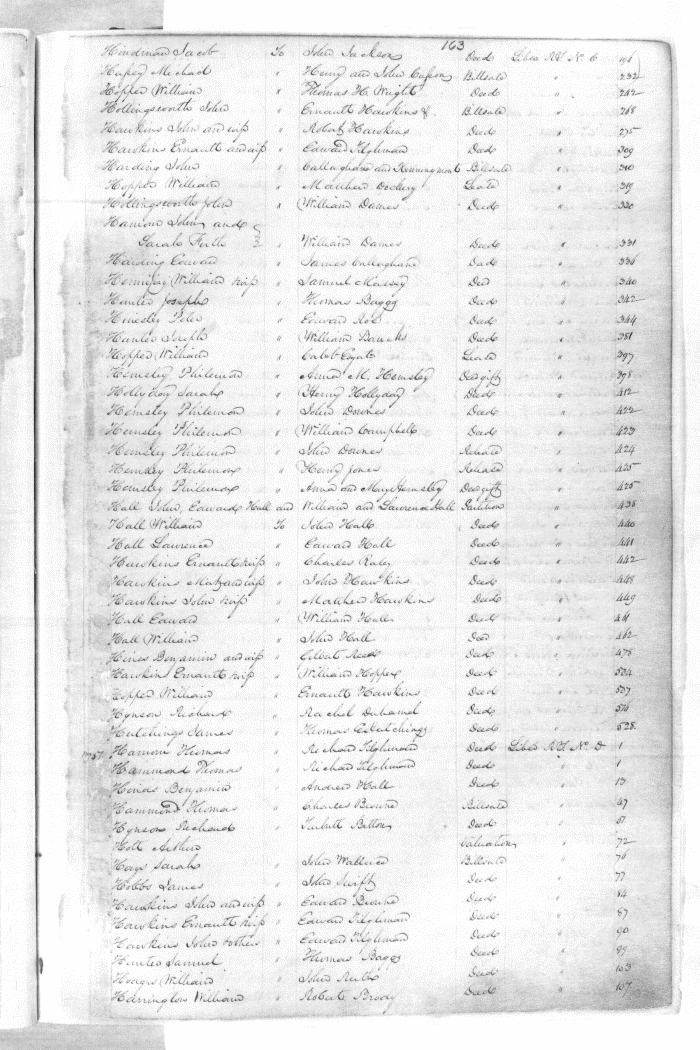 163
Hindman Jacob To John Jackson Deed Liber No. C 196
Michael " Henry and John Billsale " 232
Hopper William " Thomas H. Wright Deed " 242
Hollingsworth John " Ernault Hawkins &. Billsale " 268
Hawkins John and wife " Robert Hawkins Deed " 275
Hawkins Ernault and wife " Edward Tilghman Deed " 309
Harding John " Callaghane and Billsale " 310
Hopper William " Matthew Dockery Lease " 319
Hollingsworth John " William Dames Deed " 330
John and
Sarah " William Dames Deed " 331
Harding Edward " James Callaghane Deed " 336
William & wife " Samuel Massey Deed " 340
Hunter Joseph " Thomas Baggs Deed " 342
Peter " Edward Roe Deed " 344
Hunter Joseph " William Deed " 381
Hopper William " Caleb Lease " 397
Hemsley Philemon " Anna M. Hemsley Deed gift " 398
Hollyday Sarah " Henry Hollyday Deed " 412
Hemsley Philemon " John Downes Deed " 422
Hemsley Philemon " William Campbell Deed " 423
Hemsley Philemon " John Downes Release " 424
Hemsley Philemon " Henry Jones Release " 425
Hemsley Philemon " Anna and Mary Hemsley Deed gift " 425
Hall John, Edward Hall and William and Lawrence Hall Partition " 436
Hall William To John Hall Deed " 440
Hall Lawrence " Edward Hall Deed " 441
Hawkins Ernault & wife " Charles Deed " 442
Hawkins Mat. and wife " John Hawkins Deed " 448
Hawkins John & wife " Matthew Hawkins Deed " 449
Hall Edward " William Hall Deed " 461
Hall William " John Hall Deed " 462
Hines Benjamin and wife " Gilbert Reed Deed " 478
Hawkins Ernault & wife " William Hopper Deed " 504
Hopper William " Ernault Hawkins Deed " 507
Hynson Richard " Rachel Duhamel Deed " 516
Hutchings James " Thomas Hutchings Deed " 528
Thomas " Richard Tilghman Deed Liber No. D 1
Hammond Thomas " Richard Tilghman Deed " 1
Hines Benjamin " Andrew Hall Deed " 13
Hammond Thomas " Charles Browne Billsale " 47
Hynson Richard " Turbutt Betton Deed " 51
Holt Arthur Valuation " 72
Hays Sarah " John Wallace Billsale " 76
Hobbs James " John Swift Deed " 77
Hawkins John and wife " Edward Browne Deed " 84
Hawkins Ernault & wife " Edward Tilghman Deed " 87
Hawkins John & others " Edward Tilghman Deed " 90
Hunter Samuel " Thomas Baggs Deed " 99
Hodges William " John Ruth Deed " 103
Harrington William " Robert Brody Deed " 107